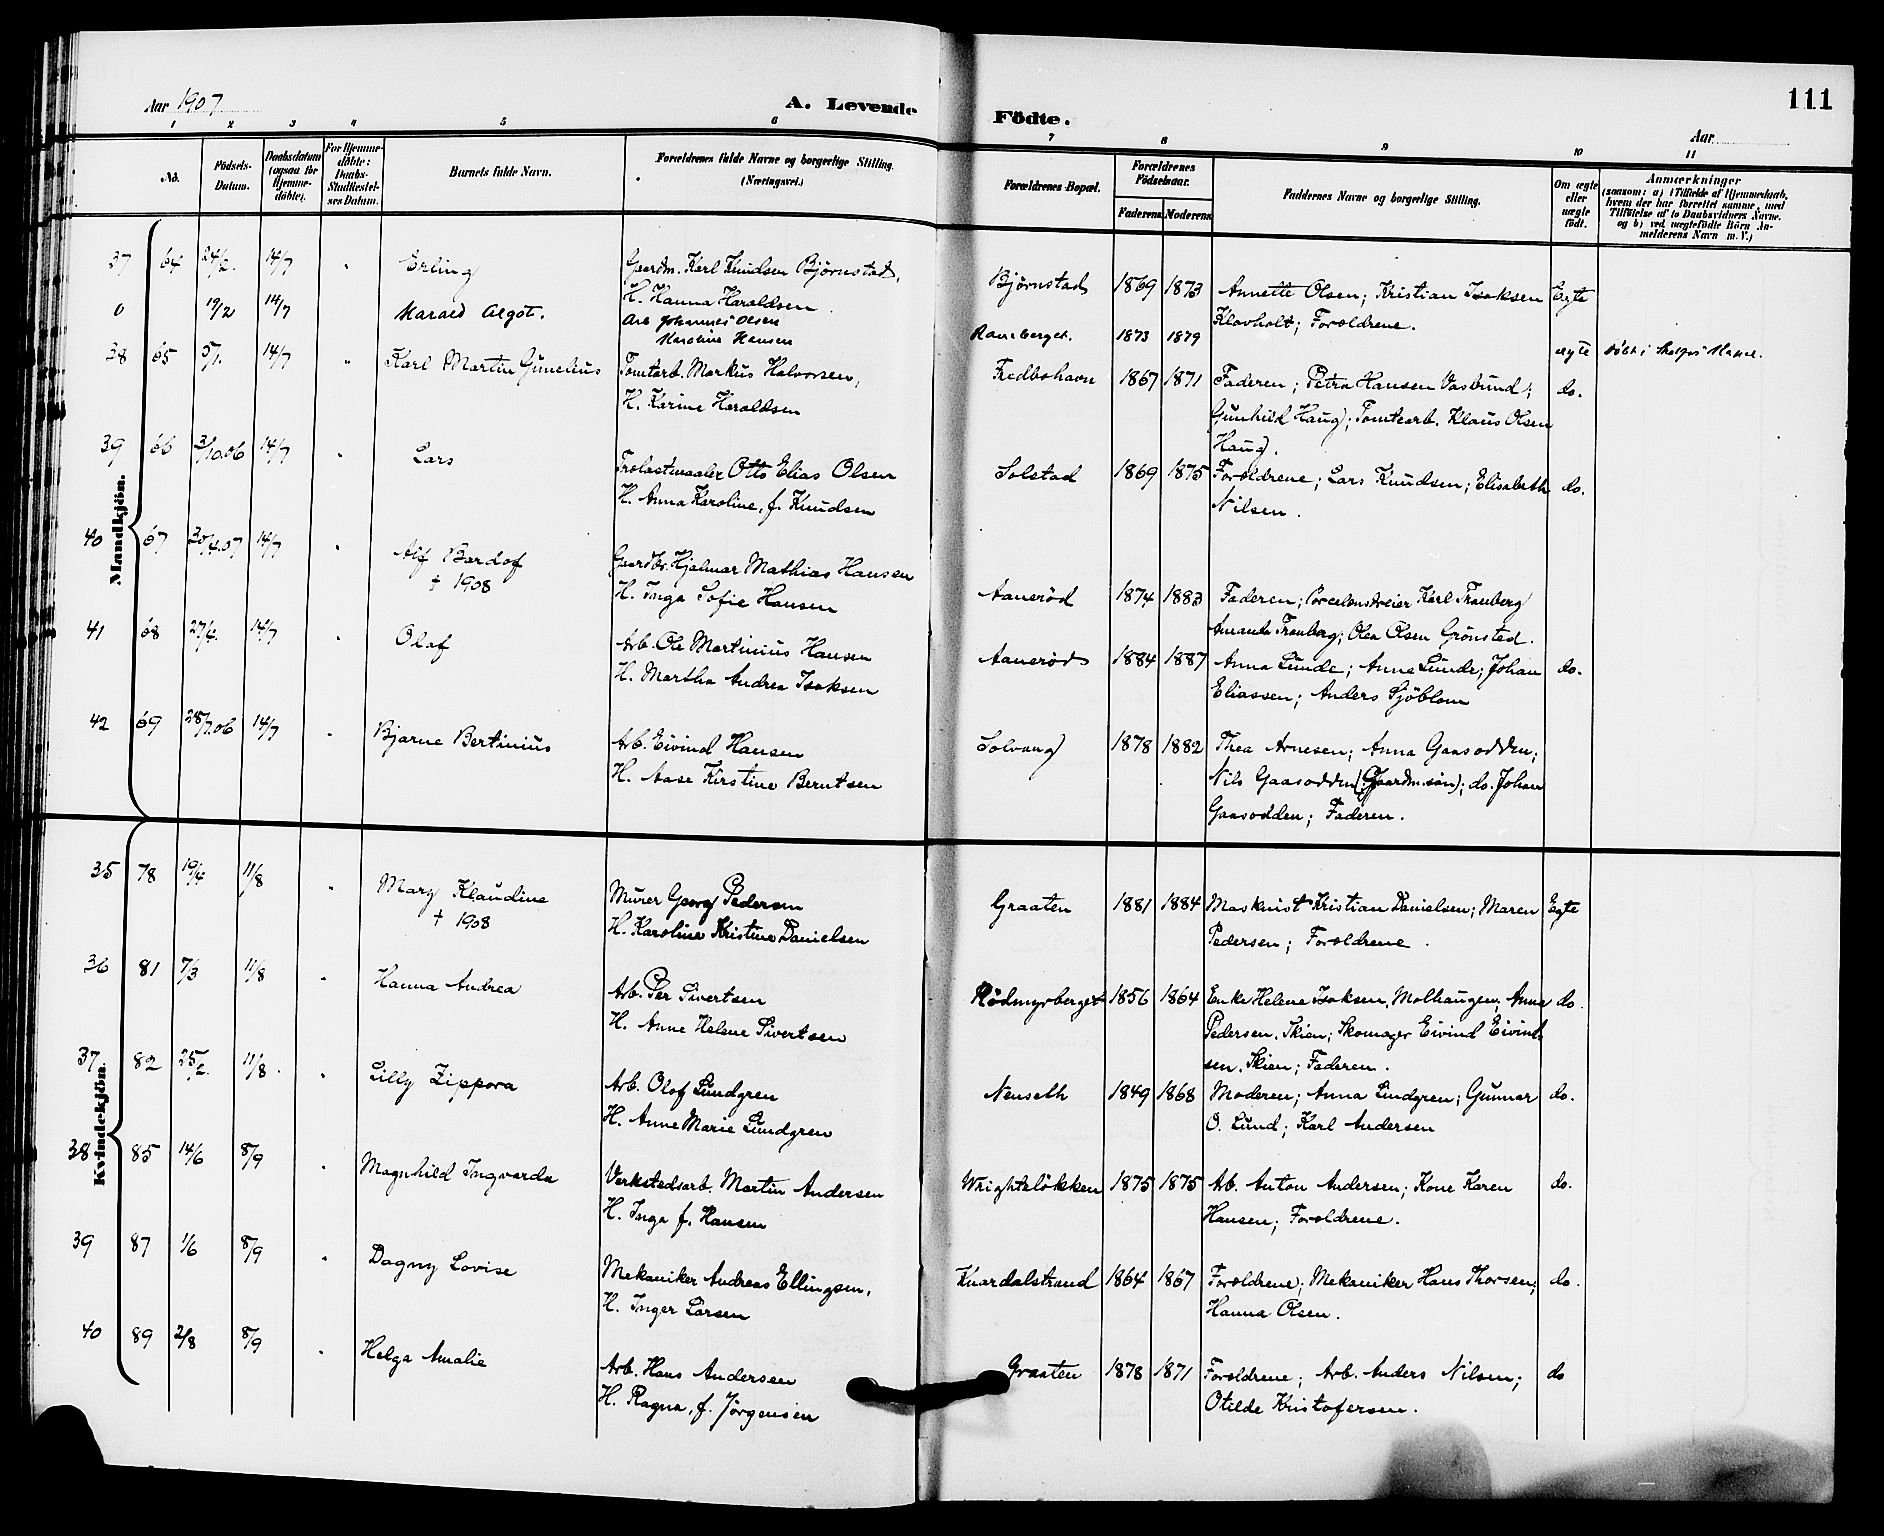 111
Aar 1907
A. Levende Födte.
Aar
1 2 3 4 5 6 7 8 9 10 11
No.
Födsels-Datum.
Daabsdatum (ogsaa for Hjemme-döbte).
For Hjemme-döbte: Daabs-Stadfæstel-ses Datum.
Barnets fulde Navn.
Forældrenes fulde Navne og borgerlige Stilling.
(Næringsvei.)
Forældrenes Bopæl.
Forældrenes Födselsaar.
Faderens
Moderens
Faddernes Navne og borgerlige Stilling.
Om ægte eller uægte födt.
Anmærkninger
(saasom: a) i Tilfælde af Hjemmedaab,
hvem der har forrettet samme, med
Tilföielse af to Daabsvidners Navne.
og b) ved uægtefödte Börn An-
melderens Navn m. V.)
Mandkjön.
37 64 24/2. 14/7 " Erling Gaardm. Karl Knudsen Bjørnstad, Bjørnstad 1869 1873 Annette Olsen; Kristian Isaksen Egte
H. Hanna Haraldsen Klovholt; Forældrene.
0 19/2 14/7 Harald Algot. Arb Johannes Olsen Ravnberget. 1873 1879 ægte
Karoline Hansen
38 65 5/1. 14/7 " Karl Martin Gunelius Tomtarb. Markus Halvorsen, Fredbohavn 1867 1871 Faderen; Petra Hansen Vasbund; do.
H. Karine Haraldsen Gunhild Haug; Tomtearb. Klaus Olsen
Haug.
39 66 3/10.06 14/7 " Lars Trælastmaaler Otto Elias Olsen Solstad 1869 1875 Forældrene; Lars Knudsen; Elisabeth do.
H. Anna Karoline, f. Knudsen Nilsen.
40 67 30/4.07 14/7 " Alf Bardof Gaardbr. Hjalmar Mathias Hansen Aanerød 1874 1883 Faderen; Porcelænsdreier Karl Tranberg
† 1908 H. Inga Sofie Hansen Amanda Tranberg; Olea Olsen Grönsted.
41 68 27/4. 14/7 " Olaf Arb. Ole Martinius Hansen Aanerød 1884 1887 Anna Lunde; Anne Lunde; Johan do.
H. Martha Andrea Isaksen Eliassen; Anders Sjöblom
42 69 28/7.06 14/7 " Bjarne Bertinius Arb. Eivind Hansen Solvang 1878 1882 Thea Arnesen; Anna Gaasodden;
H. Aase Kirstine Berntsen Nils Gaasodden (Gaardm.søn); do. Johan
Gaasodden; Faderen.
Kvindekjön.
35 78 19/4 11/8 " Mary Klaudine Murer Georg Pedersen Graaten 1881 1884 Maskinist Kristian Danielsen; Maren Egte
† 1908 H. Karoline Kristine Danielsen Pedersen; Forældrene.
36 81 7/3 11/8 " Hanna Andrea Arb. Per Sivertsen Rödmyrberget 1856 1864 Enke Helene Isaksen, Molhaugen; Anne do.
H. Anne Helene Sivertsen Pedersen, Skien; Skomager Eivind Eivind
sen, Skien; Faderen.
37 82 25/2. 11/8. " Lilly Zippora Arb. Olof Lundgren Nenseth 1849 1868 Moderen; Anna Lindgren; Gunnar do.
H. Anne Marie Lundgren O. Lund; Karl Andersen
38 85 14/6 8/9 " Magnhild Ingvarda Verkstedsarb. Martin Andersen Wrightsløkken 1875 1875 Arb. Anton Andersen; Kone Karen do.
H. Inga f. Hansen Hansen; Forældrene.
39 87 1/6 8/9 " Dagny Lovise Mekaniker Andreas Ellingsen, Knardalstrand 1864 1867 Forældrene; Mekaniker Hans Thorsen; do.
H. Inger Larsen Hanna Olsen.
40 89 2/8 8/9 " Helga Amalie Arb. Hans Andersen Graaten 1878 1871 Forældrene; Arb. Anders Nilsen; do
H. Ragna, f. Jørgensen Otilde Kristofersen.